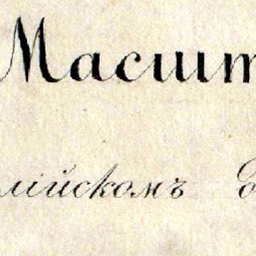 Масшт
лійскомъ